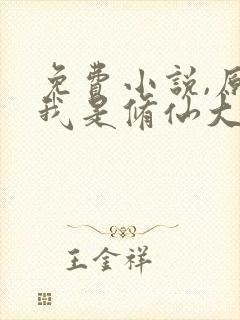 免费小说,原
我是脩仙大
王金祥